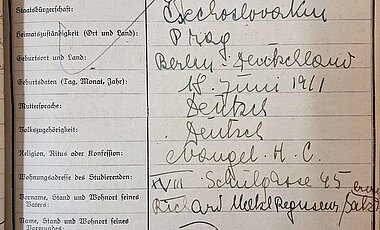 Staatsbürgerschaft: Tschechoslovakin
Heimatszuständigkeit (Ort und Land): Prag
Geburtsort und Land: Berlin Deutschland
Geburtsdaten (Tag, Monat, Jahr): 18. Juni 1911
Muttersprache: Deutsch
Volkszugehörigkeit: Deutsch
Religion, Ritus oder Konfession: Evangel. H. C.
Wohnungsadresse des Studierenden: XVIII Schulgasse 45
Vorname, Stand und Wohnort seines
Vaters: Richard Regisseur
Name, Stand und Wohnort seines
Vormundes: